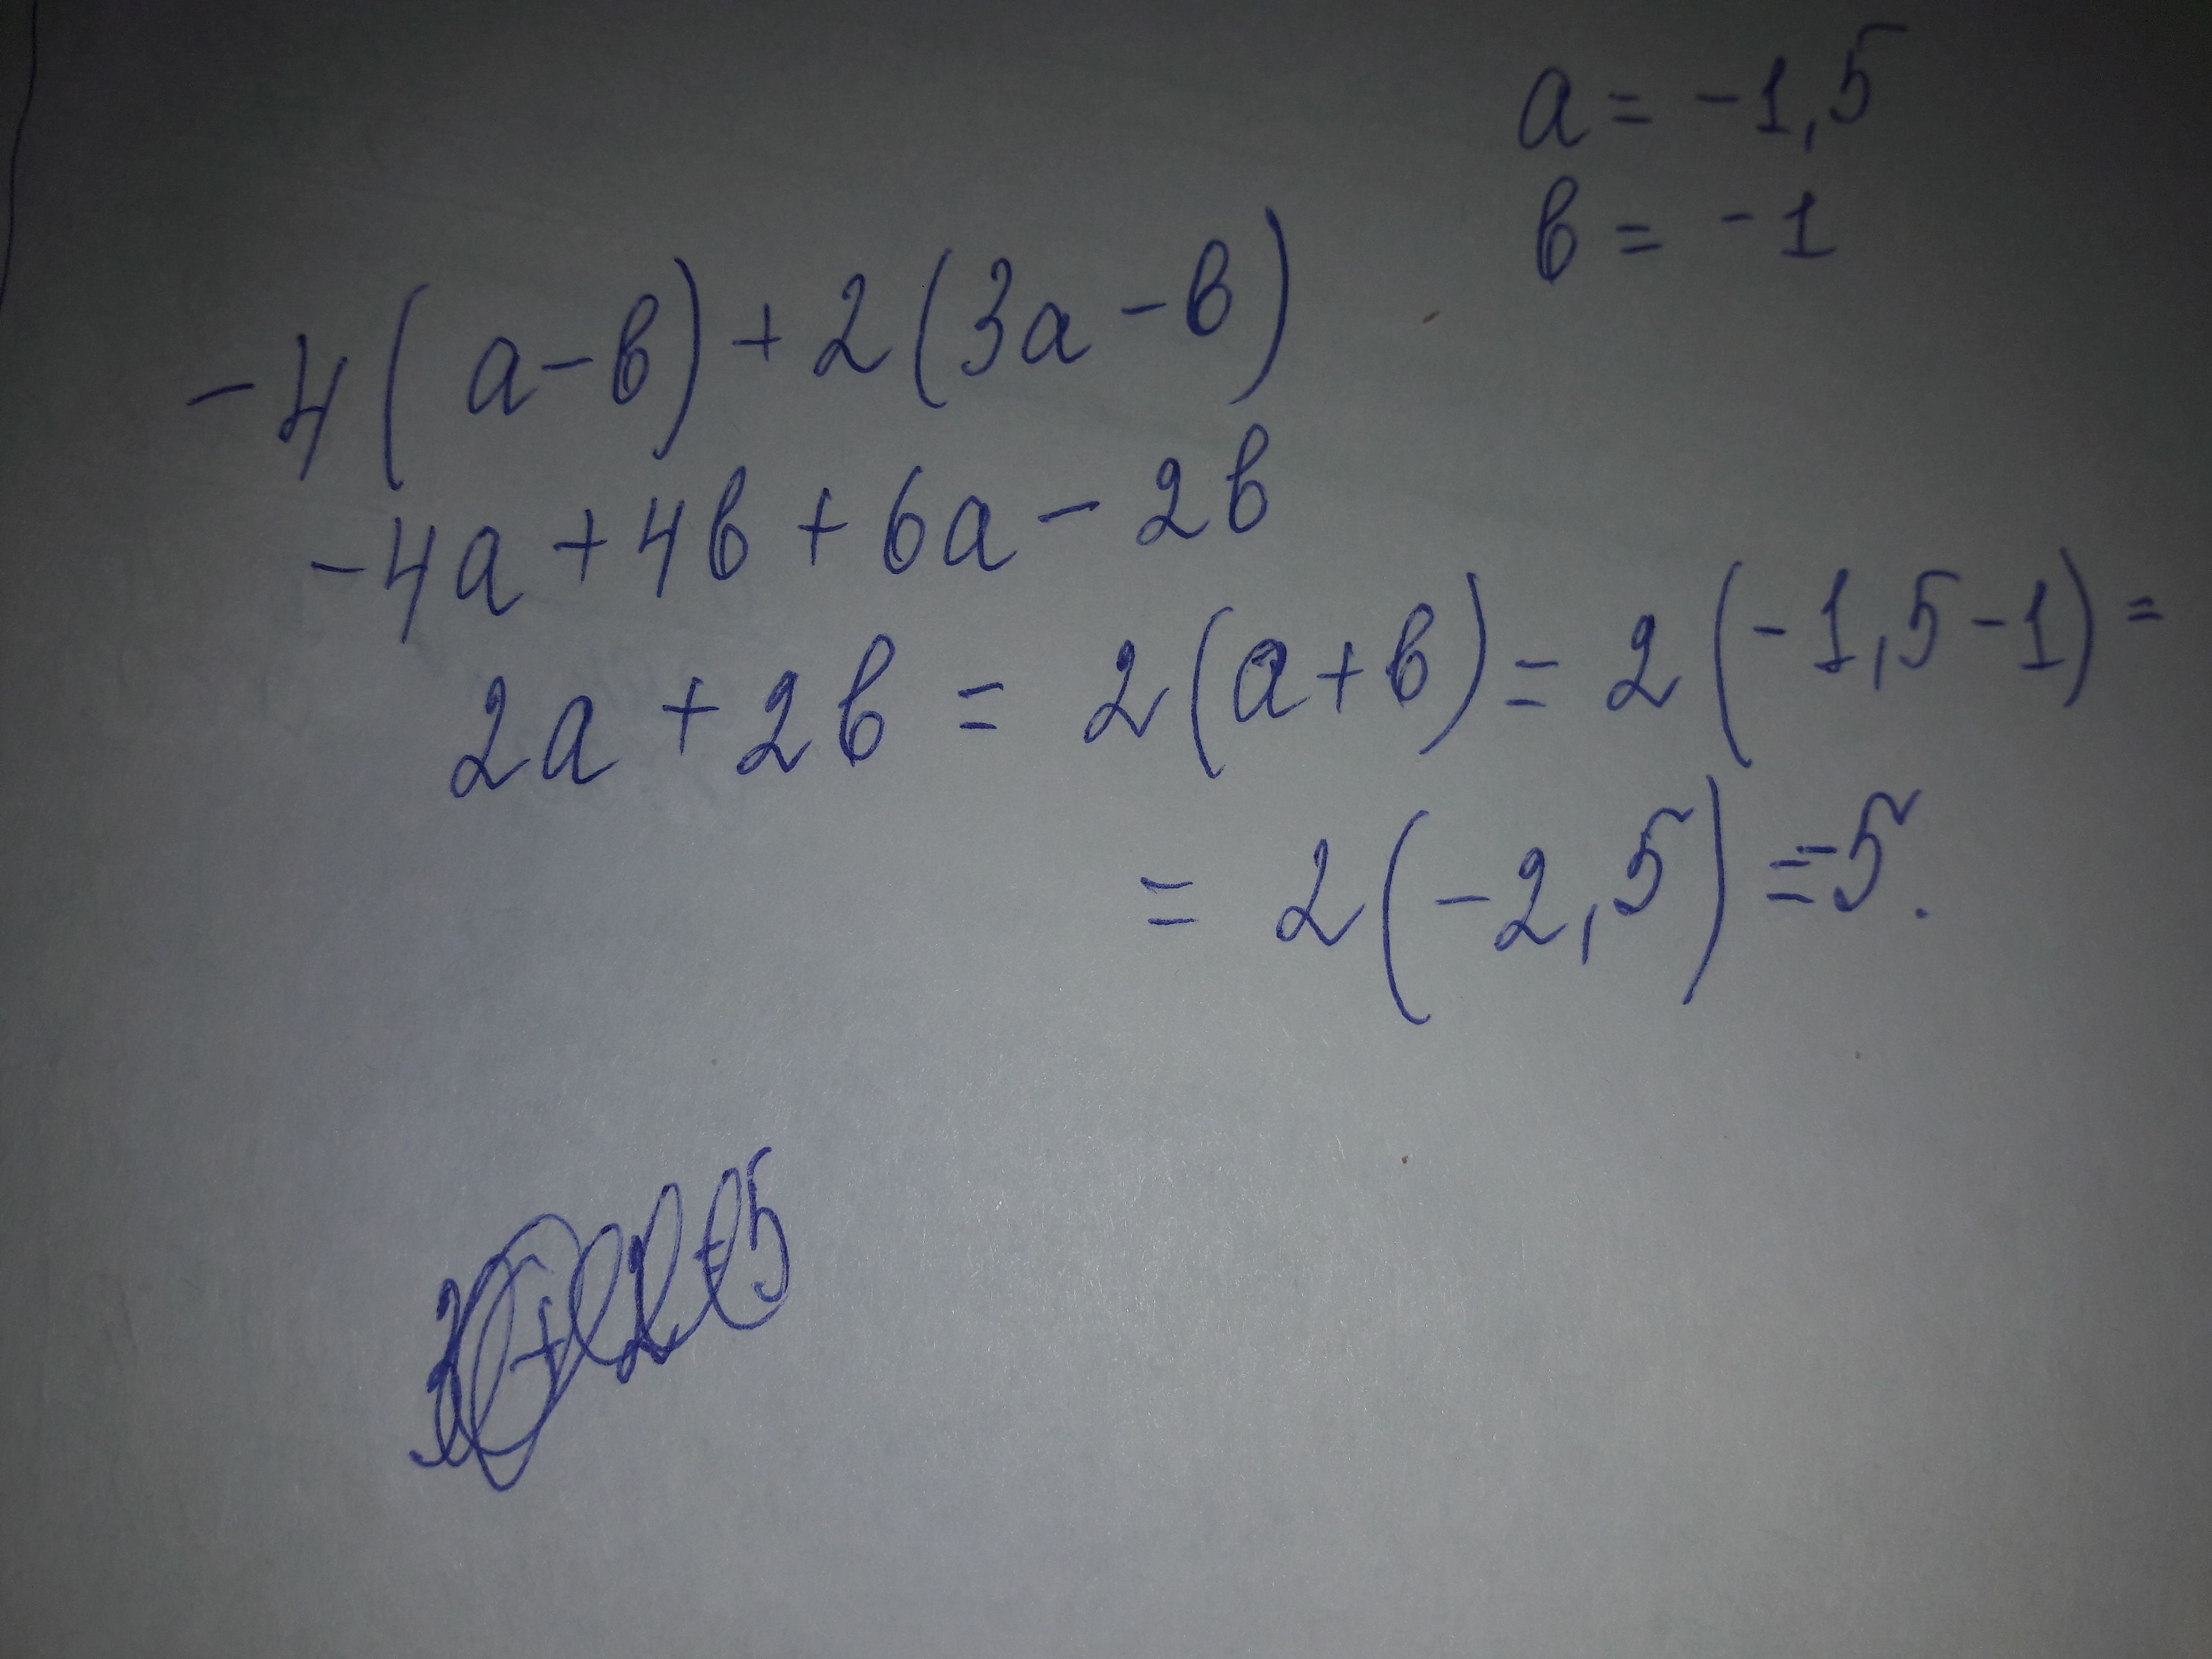 a = -1,5
в = -1
-4(a-в)+2(3a-в)
-4a+4в+6a-2в
2a+2в = 2(a+в) = 2(-1,5-1) =
= 2(-2,5) = -5.